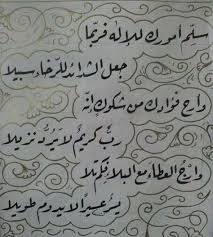 سلّم أمورك للإله فربّما
جعل الشدائد للرخاء سبيلا
وارح فؤادك من شكوك إنّه
ربٌّ كريمٌ لا يَردُّ نزيلا
وارجُ العطاء مع البلاء فكم تلا
يسرٌ عسيراً لا يدوم طويلا